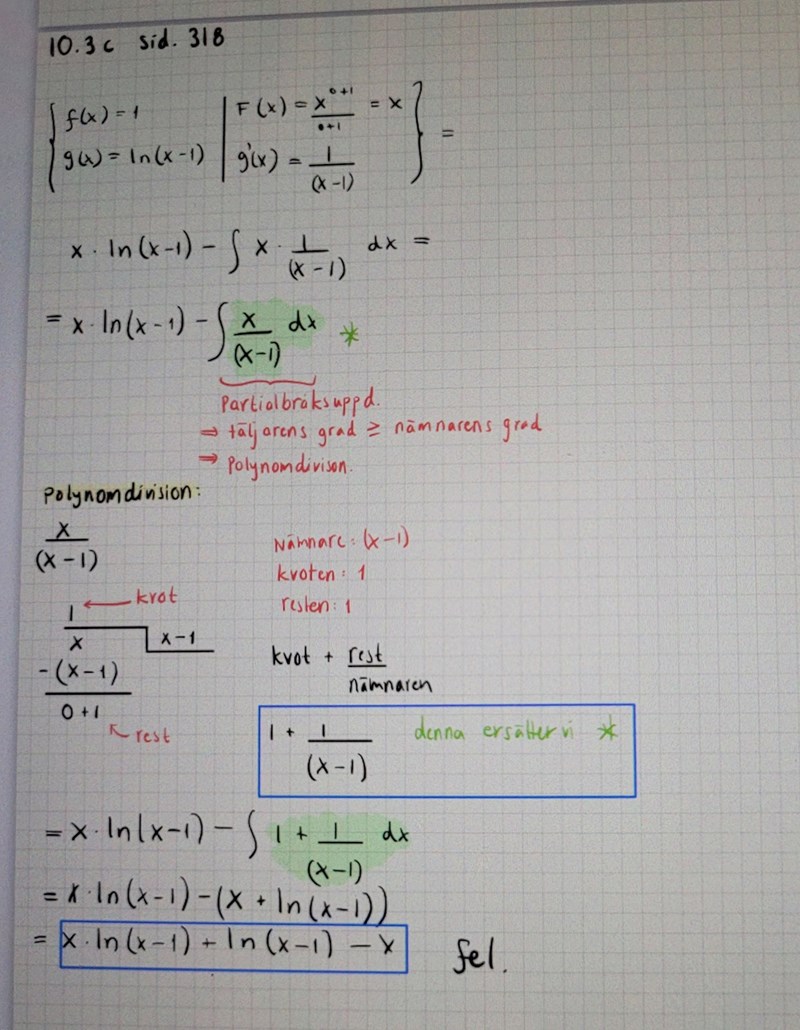 10.3c sid. 318
f(x) = 1 | F(x) = x^(0+1)/(0+1) = x
g(x) = ln(x-1) | g'(x) = 1/(x-1) } =
x · ln(x-1) - ∫ x · 1/(x-1) dx =
= x · ln(x-1) - ∫ x/(x-1) dx *
Partialbråksuppd.
⇒ täljarens grad ≥ nämnarens grad
⇒ Polynomdivison.
Polynomdivision:
x/(x-1)
Nämnare: (x-1)
kvoten: 1
resten: 1
1 ← kvot
x | x-1
-(x-1)
0+1
↖ rest
kvot + rest/nämnaren
1 + 1/(x-1) denna ersätter vi *
= x · ln(x-1) - ∫ 1 + 1/(x-1) dx
= x · ln(x-1) - (x + ln(x-1))
= x · ln(x-1) + ln(x-1) - x fel.